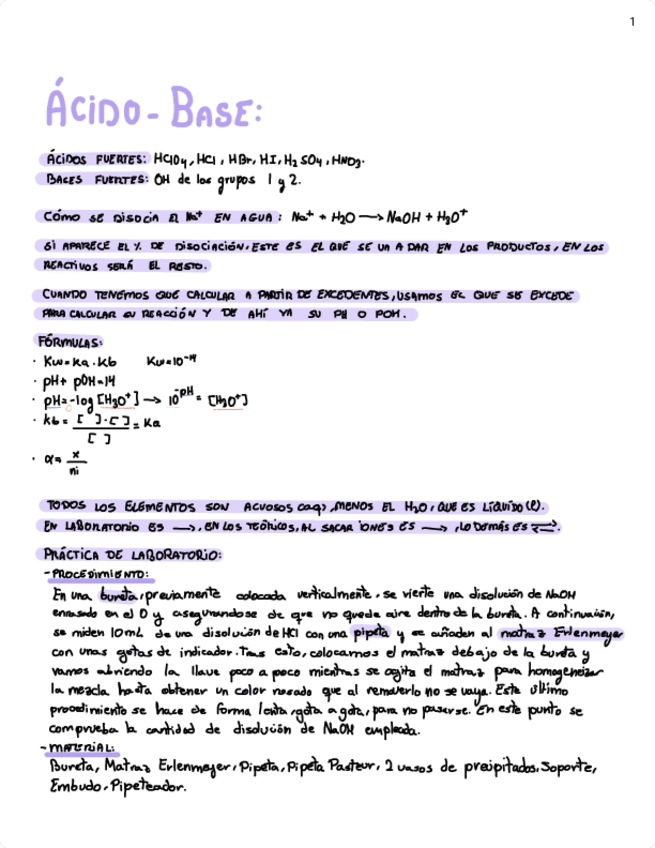 1
ÁCIDO-BASE:
ÁCIDOS FUERTES: HClO₄, HCl, HBr, HI, H₂SO₄, HNO₃.
BASES FUERTES: OH de los grupos 1 y 2.
CÓMO SE DISOCIA EL Na⁺ EN AGUA: Na⁺ + H₂O → NaOH + H₃O⁺
SI APARECE EL % DE DISOCIACIÓN, ESTE ES EL QUE SE VA A DAR EN LOS PRODUCTOS, EN LOS
REACTIVOS SERÁ EL RESTO.
CUANDO TENEMOS QUE CALCULAR A PARTIR DE EXCEDENTES, USAMOS EL QUE SE EXCEDE
PARA CALCULAR SU REACCIÓN Y DE AHÍ YA SU PH O POH.
FÓRMULAS:
· Kw = Ka · Kb Kw = 10⁻¹⁴
· pH + pOH = 14
· pH = -log [H₃O⁺] → 10⁻ᵖᴴ = [H₃O⁺]
· kb = [ ]·[ ] / [ ] = Ka
· α = x / ni
TODOS LOS ELEMENTOS SON ACUOSOS (aq), MENOS EL H₂O, QUE ES LÍQUIDO (l).
EN LABORATORIO ES →, EN LOS TEÓRICOS, AL SACAR IONES ES →, LO DEMÁS ES ⇌.
PRÁCTICA DE LABORATORIO:
- PROCEDIMIENTO:
En una bureta, previamente colocada verticalmente, se vierte una disolución de NaOH
enrasado en el 0 y asegurandose de que no quede aire dentro de la bureta. A continuación,
se miden 10mL de una disolución de HCl con una pipeta y se añaden al matraz Erlenmeyer
con unas gotas de indicador. Tras esto, colocamos el matraz debajo de la bureta y
vamos abriendo la llave poco a poco mientras se agita el matraz para homogeneizar
la mezcla hasta obtener un color rosado que al removerlo no se vaya. Este último
procedimiento se hace de forma lenta, gota a gota, para no pasarse. En este punto se
comprueba la cantidad de disolución de NaOH empleada.
- MATERIAL:
Bureta, Matraz Erlenmeyer, Pipeta, Pipeta Pasteur, 2 vasos de precipitados, Soporte,
Embudo, Pipeteador.